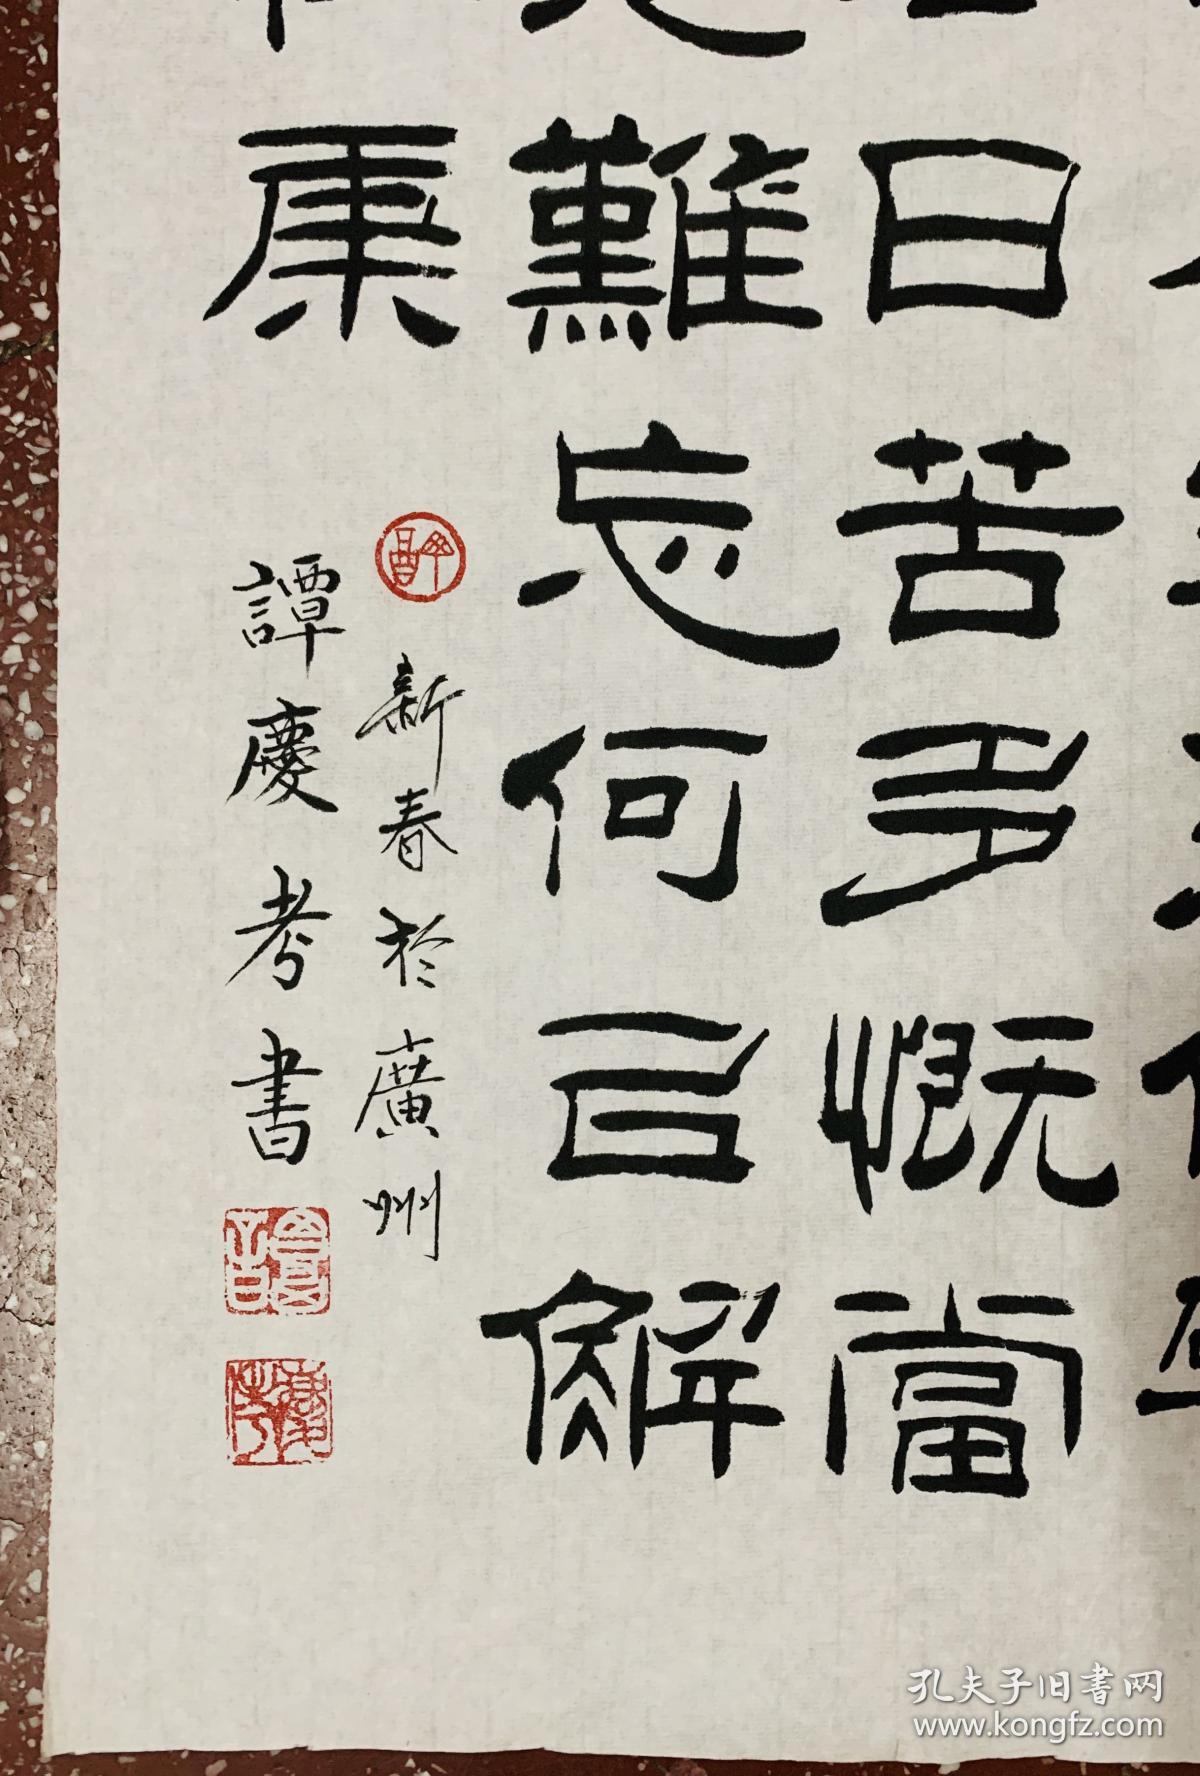 日苦多慨當
難忘何㠯解
康
新春於廣州
譚慶考書
孔夫子旧书网
www.kongfz.com